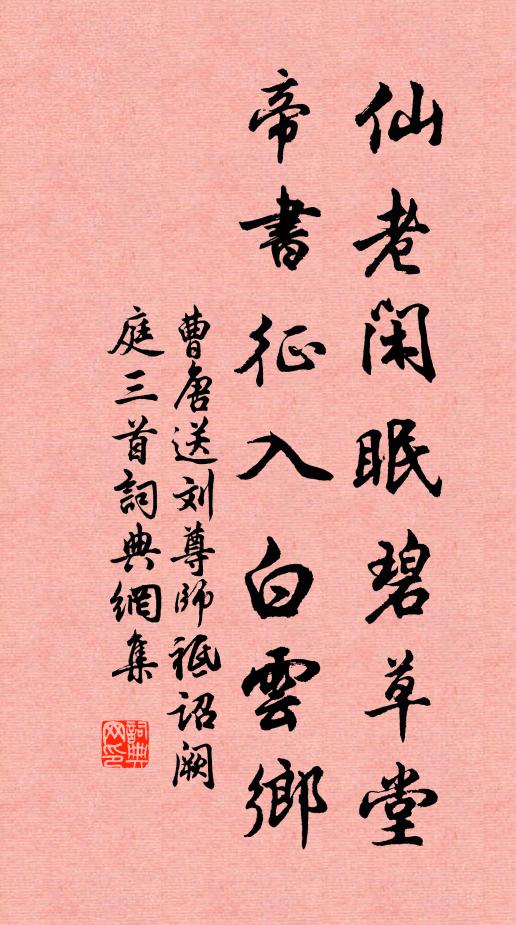 仙老閑眠碧草堂
帝書征入白雲鄉
曹唐送刘尊師祗诏阙
庭三首詞典網集
詞典
网印